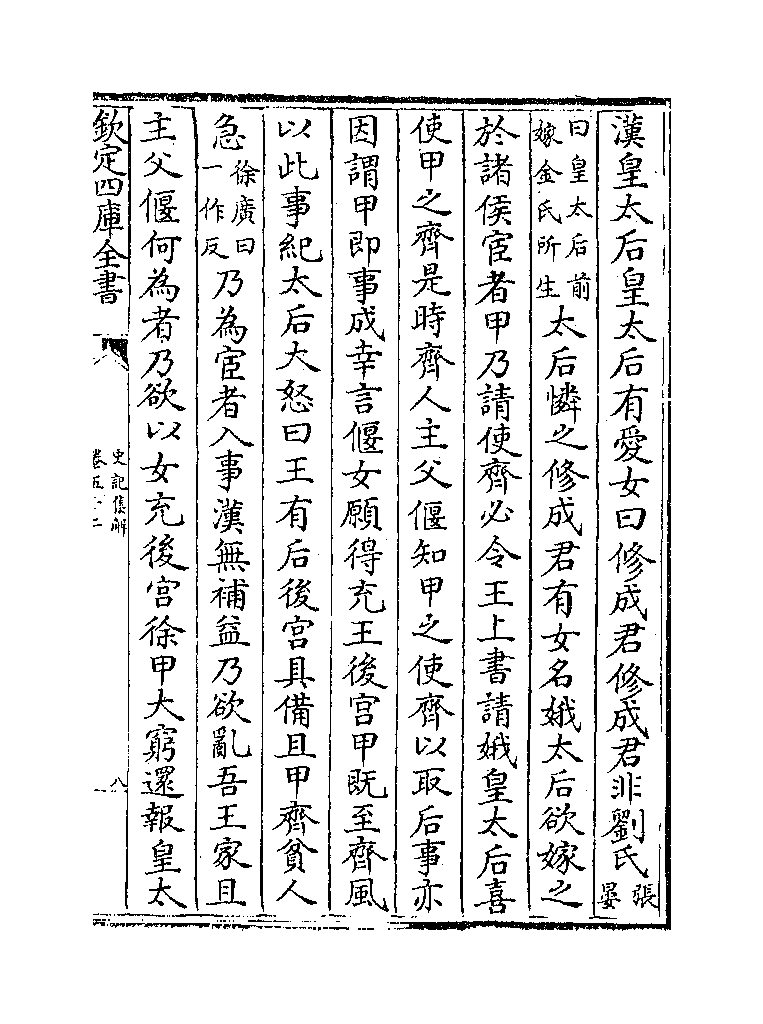 漢皇太后皇太后有愛女曰修成君修成君非劉氏張晏
曰皇太后前嫁金氏所生太后憐之修成君有女名娥太后欲嫁之
於諸侯宦者甲乃請使齊必令王上書請娥皇太后喜
使甲之齊是時齊人主父偃知甲之使齊以取后事亦
因謂甲即事成幸言偃女願得充王後宮甲既至齊風
以此事紀太后大怒曰王有后後宮具備且甲齊貧人
急徐廣曰一作反乃為宦者入事漢無補益乃欲亂吾王家且
主父偃何為者乃欲以女充後宮徐甲大窮還報皇太
欽定四庫全書
史記集解
卷五十二
八